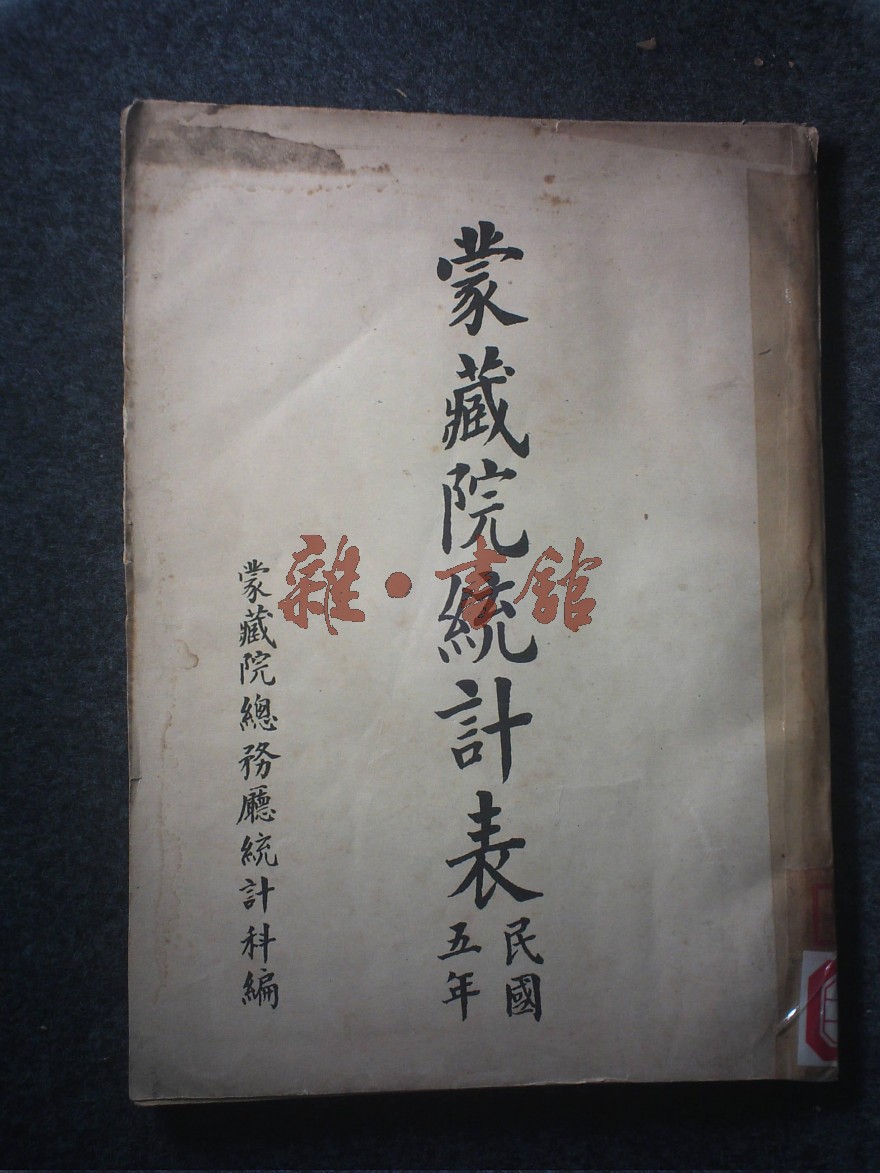 蒙藏院統計表
民國
五年
蒙藏院總務廳統計科編
雜·書館